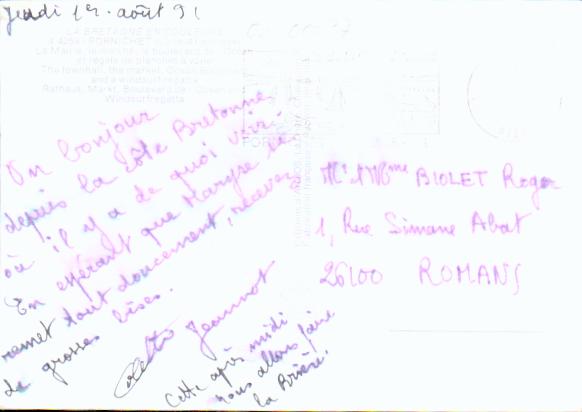 Jeudi 1er août 91
LA BRETAGNE EN COULEURS
PORNICHET
La Mairie, le marché, le boulevard de l'Océan
et régate de planches à voile
The townhall, the market, Ocean Boulevard
and a windsurfregatta
Rathaus, Markt, Boulevard de l'Océan
Windsurfregatta
Un bonjour
depuis la côte Bretonne
où il y a de quoi voir.
En espérant que Maryse se
remet tout doucement, recevez
de grosses bises.
Jeannot
Cette après midi
nous allons faire
la Brière.
Mr Mme BIOLET Roger
1, Rue Simone Abat
26100 ROMANS